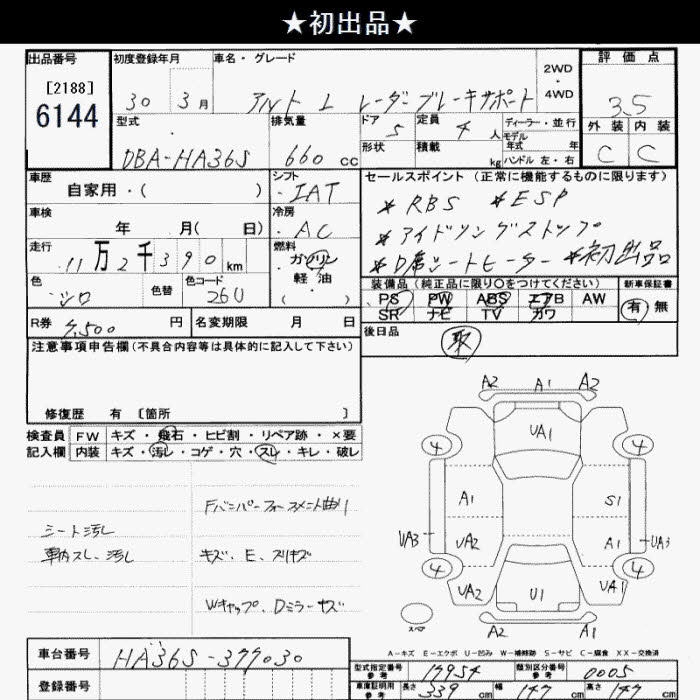 ★初出品★
出品番号 初度登録年月 車名・グレード 2WD・4WD 評価点
[2188]
6144
30 3月 アルト L レーダーブレーキサポート 3.5
型式 排気量 ドア 定員 ディーラー・並行 外装 内装
5 4人 モデル年式 年
DBA-HA36S 660cc 形状 積載 kg ハンドル 左・右 C C
車歴 シフト セールスポイント (正常に機能するものに限ります)
自家用・( ) IAT * RBS * ESP
車検 冷房 * アイドリングストップ
年 月( 日) AC * D席シートヒーター *初出品
走行 燃料
11万2千390km ガソリン
軽油
( )
色 色替 色コード 装備品 (純正品に限り○をつけてください) 新車保証書
シロ 26U PS PW ABS エアB AW 有・無
SR ナビ TV カワ
R券 7,500円 名変期限 月 日 後日品
取
注意事項申告欄 (不具合内容等は具体的に記入して下さい)
修復歴 有 [箇所 ]
検査員 FW キズ・飛石・ヒビ割・リペア跡・×要
記入欄 内装 キズ・汚し・コゲ・穴・スレ・キレ・破レ
A2 A1 A2
UA1
4 4
A1 S1
UA3 UA2 A1 UA3
4 4
UA2 U1 UA1
A2 A1
スペア
シート汚し
車内スレ、汚し
キズ、E、スリキズ
Wキャップ、Dミラーキズ
A-キズ E-エクボ U-凹み W-補修跡 S-サビ C-腐食 XX-交換済
車台番号 HA36S-377030
登録番号
型式指定番号 参考 17954 類別区分番号 参考 0005
車庫証明用 参考 長さ 339cm 幅 147cm 高さ 147cm